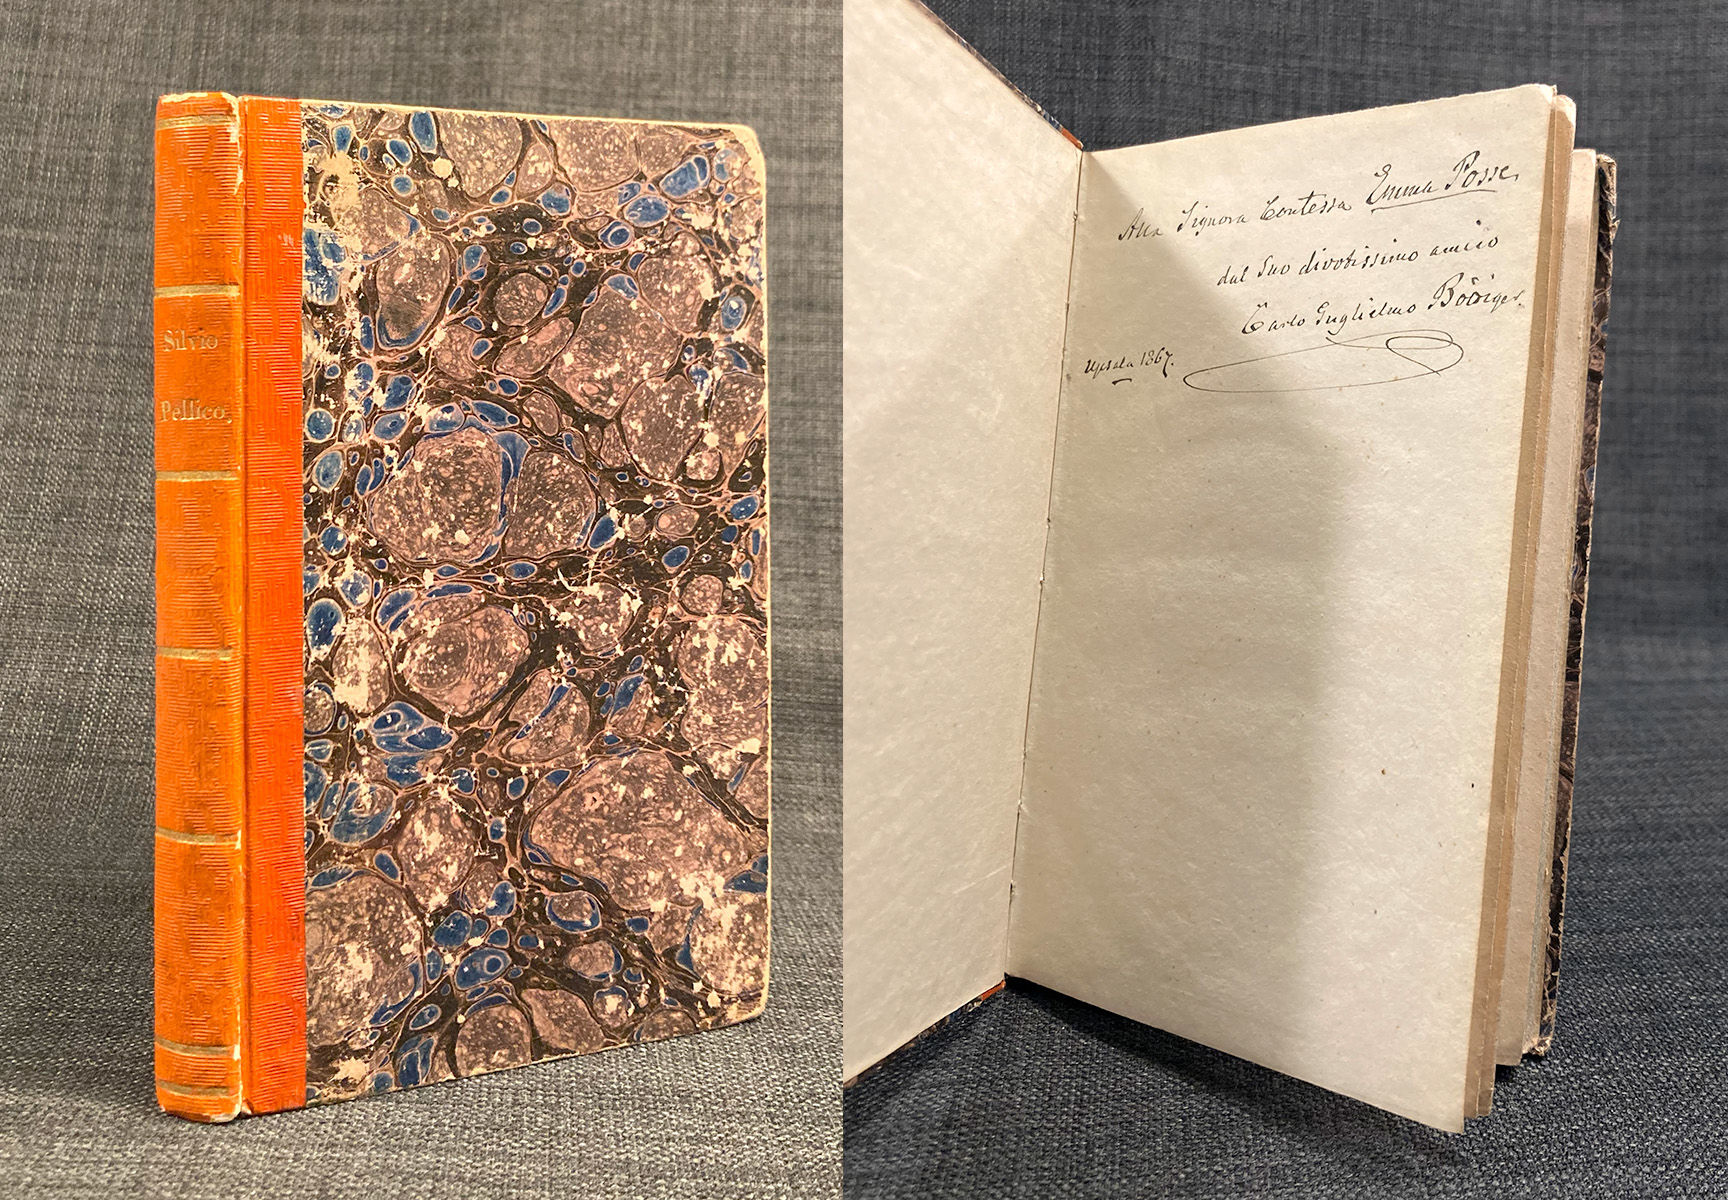 Silvio
Pellico,
Alla Signora Contessa Emma Posse,
dal Suo divotissimo amico
Carlo Guglielmo Böttiger.
Upsala 1867.